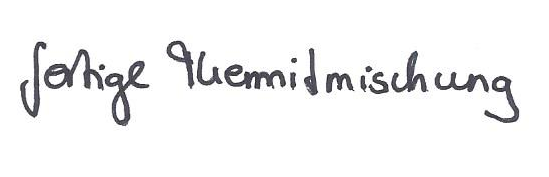 fertige Thermitmischung